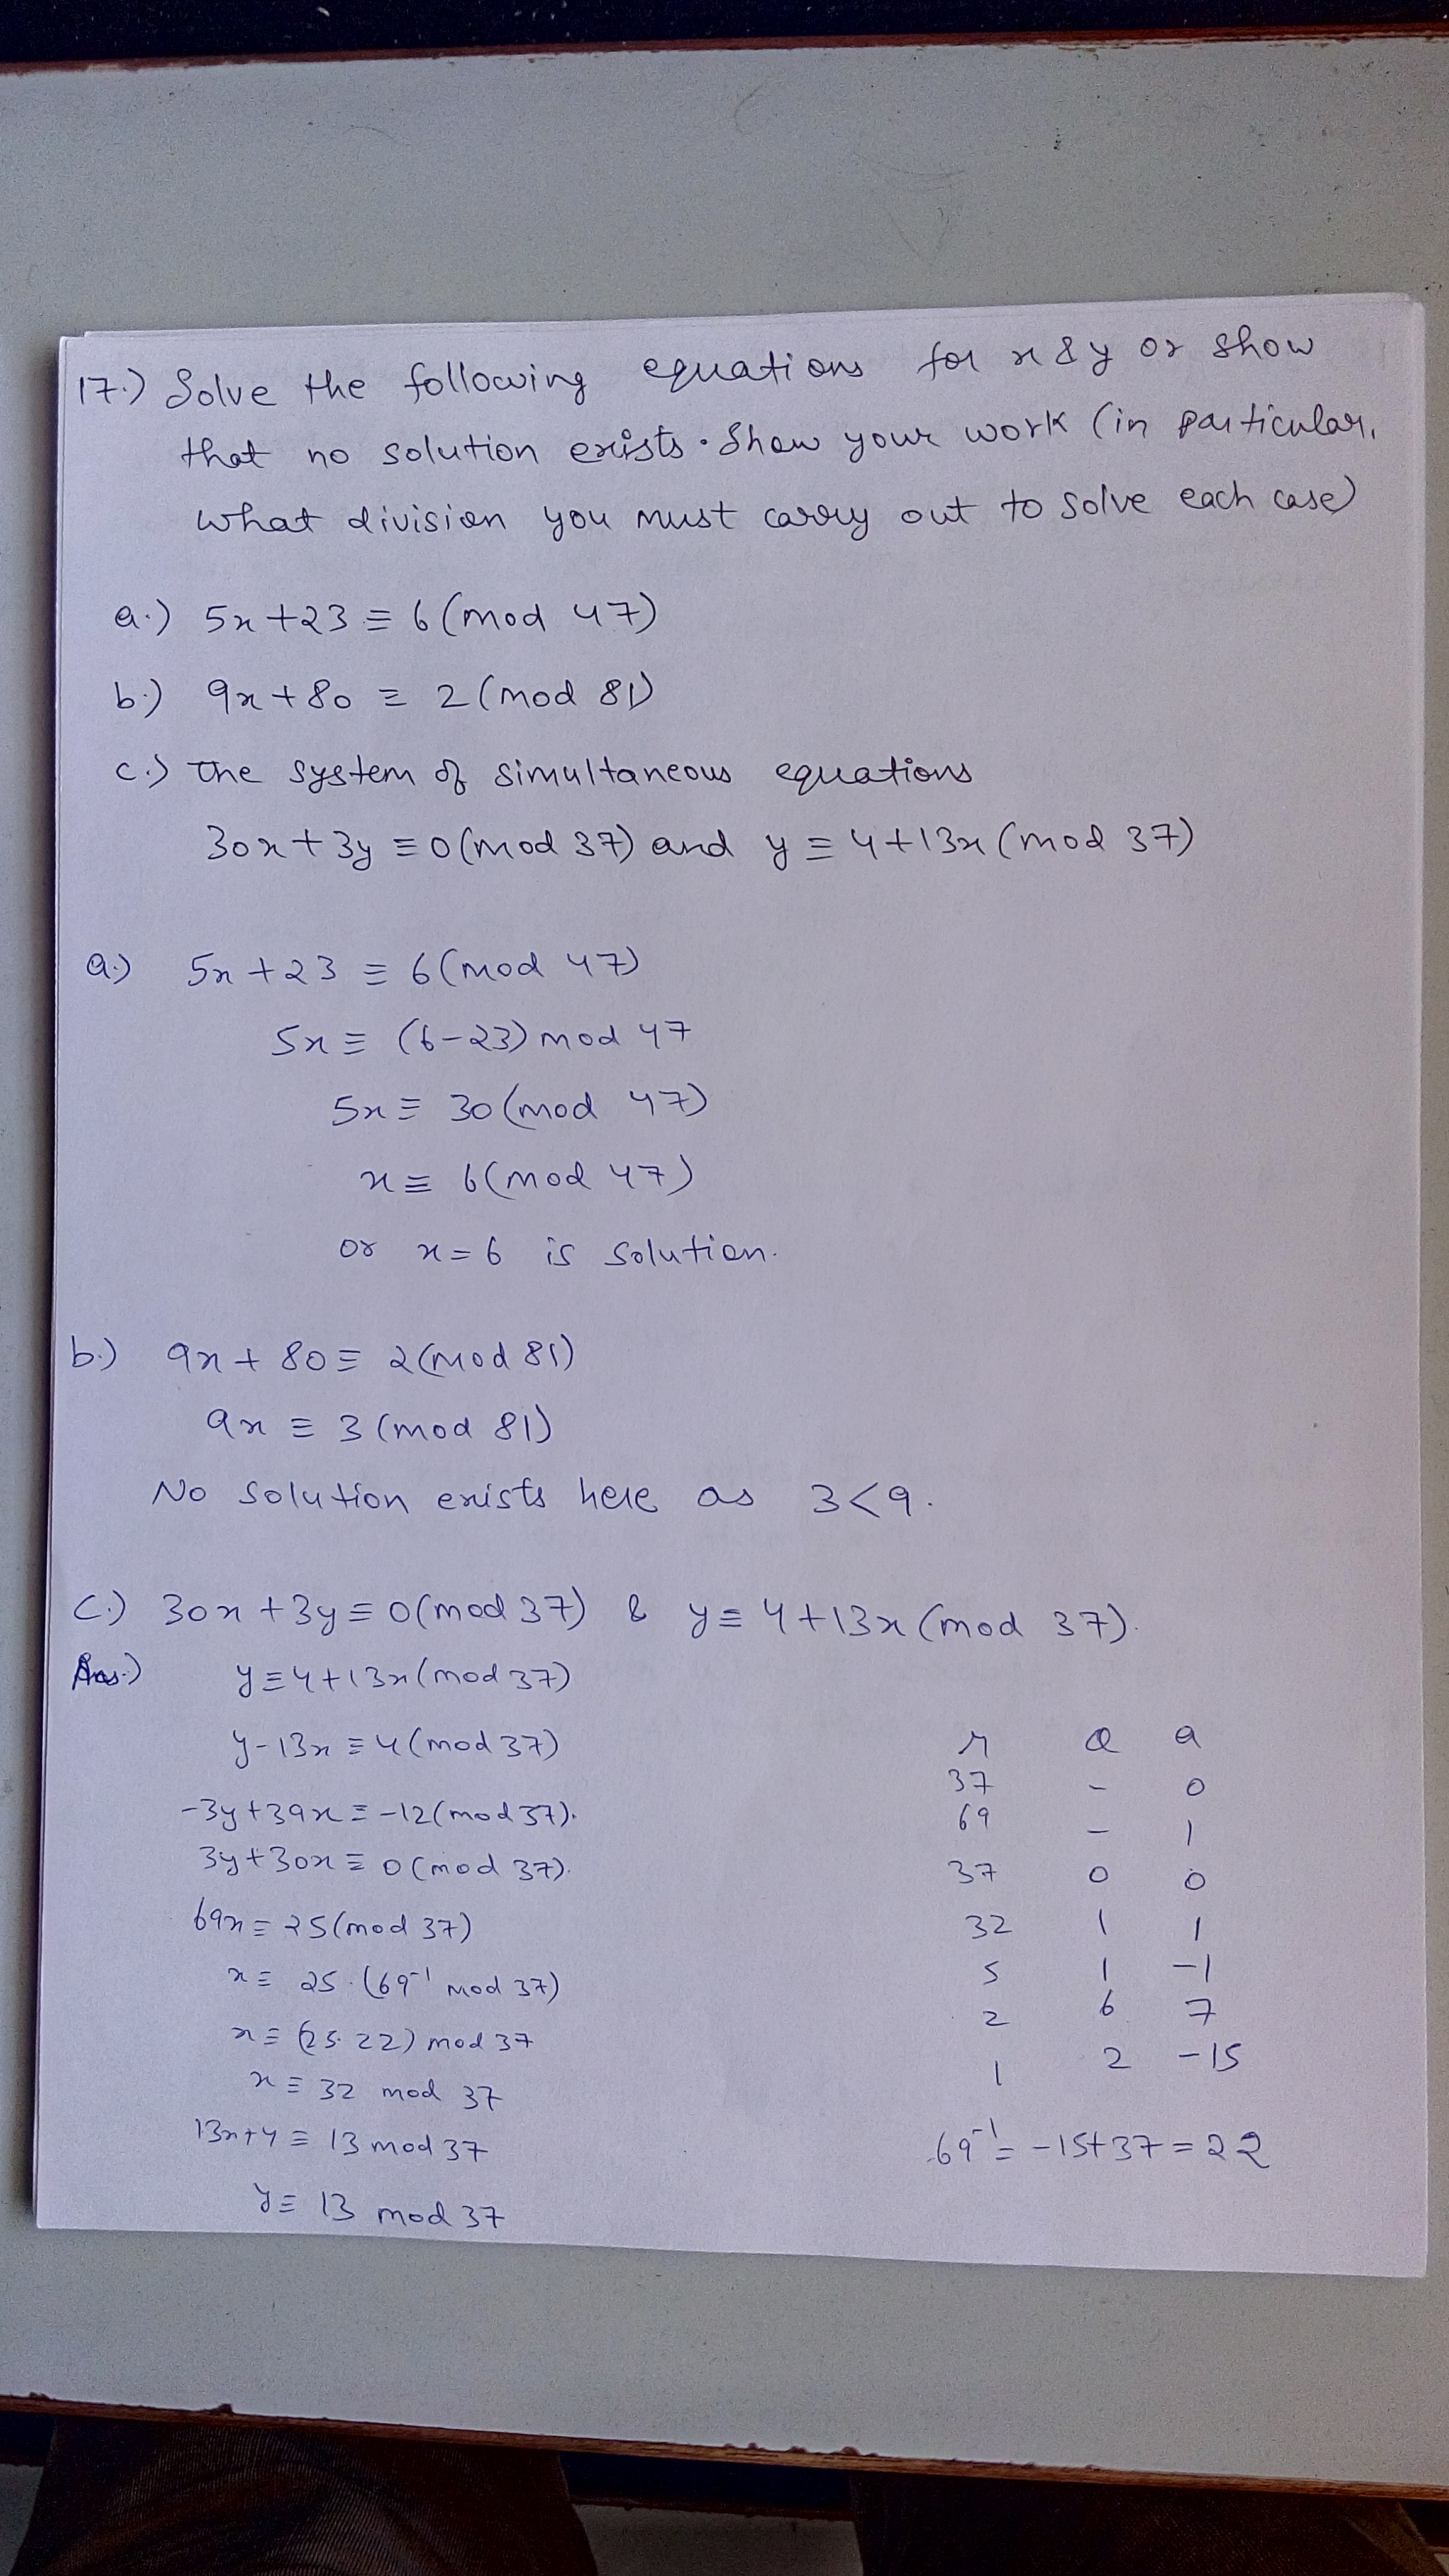 17.) Solve the following equations for x & y or show
that no solution exists. Show your work (in particular,
what division you must carry out to solve each case)
a.) 5x+23 ≡ 6 (mod 47)
b.) 9x+80 ≡ 2 (mod 81)
c.) The system of simultaneous equations
30x+3y ≡ 0 (mod 37) and y ≡ 4+13x (mod 37)
a.) 5x+23 ≡ 6 (mod 47)
5x ≡ (6-23) mod 47
5x ≡ 30 (mod 47)
x ≡ 6 (mod 47)
or x=6 is solution.
b.) 9x+80 ≡ 2 (mod 81)
9x ≡ 3 (mod 81)
No solution exists here as 3<9.
C.) 30x+3y ≡ 0 (mod 37) & y ≡ 4+13x (mod 37).
Ans.) y ≡ 4+13x (mod 37)
y-13x ≡ 4 (mod 37)
-3y+39x ≡ -12 (mod 37).
3y+30x ≡ 0 (mod 37).
69x ≡ 25 (mod 37)
x ≡ 25.(69⁻¹ mod 37)
x ≡ (25.22) mod 37
x ≡ 32 mod 37
13x+4 ≡ 13 mod 37
y ≡ 13 mod 37
r Q a
37 - 0
69 - 1
37 0 0
32 1 1
5 1 -1
2 6 7
1 2 -15
69⁻¹ = -15+37 = 22